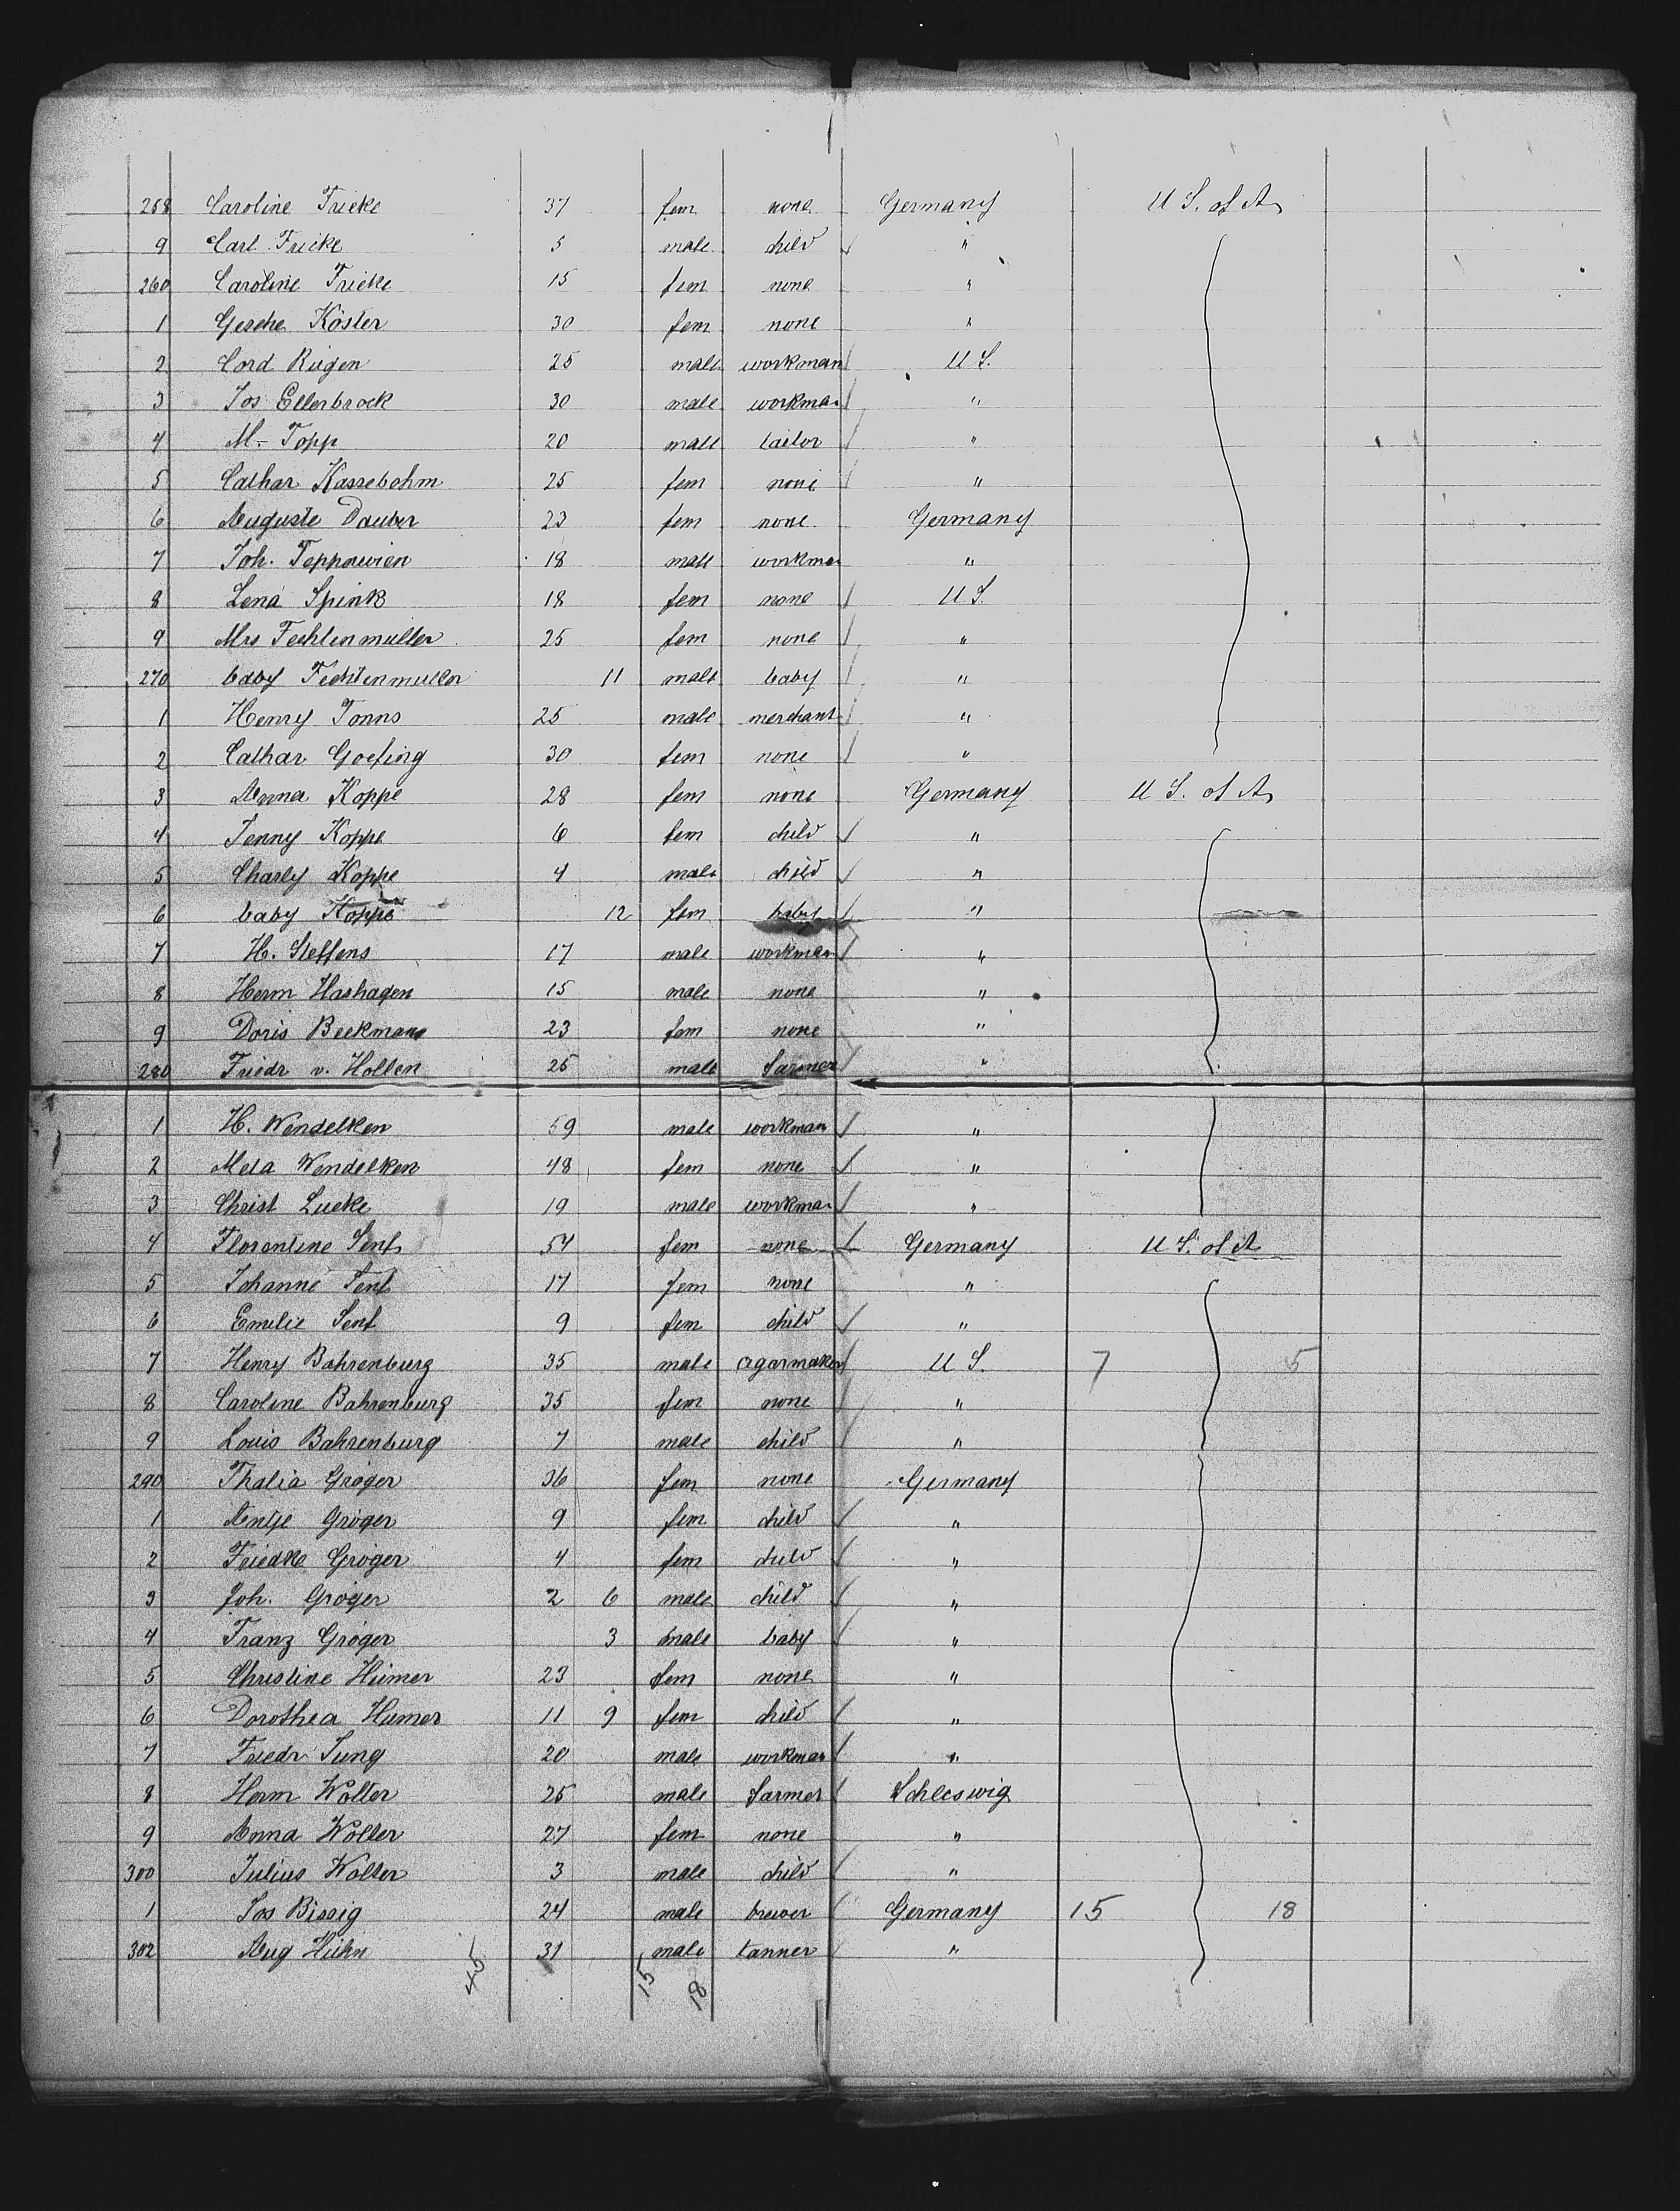 258 Caroline Fricke 37 fem none Germany U S. of A
9 Carl Fricke 5 male child "
260 Caroline Fricke 15 fem none "
1 Gesche Köster 30 fem none "
2 Cord Rugen 25 male workman U S.
3 Jos Ellerbrock 30 male workman "
4 M. Topp 20 male tailor "
5 Cathar Kassebohm 25 fem none "
6 Auguste Dauber 23 fem none Germany
7 Joh. 18 male workman "
8 Lena Spink 18 fem none U S.
9 Mrs Fechtenmuller 25 fem none "
270 baby Fechtenmuller 11 male baby "
1 Henry Tonns 25 male merchant "
2 Cathar 30 fem none "
3 Anna Koppe 28 fem none Germany U S. of A
4 Jenny Koppe 6 fem child "
5 Charly Koppe 4 male child "
6 baby Koppe 12 fem baby "
7 H. Steffens 17 male workman "
8 Herm Hashagen 15 male none "
9 Doris Beekmann 23 fem none "
280 Friedr v. Hollen 25 male farmer "
1 H. Wendelken 59 male workman "
2 Meta Wendelken 48 fem none "
3 Christ Lueke 19 male workman "
4 Florentine Senf 54 fem none Germany U S. of A
5 Johanne Senf 17 fem none "
6 Emilie Senf 9 fem child "
7 Henry Bahrenburg 35 male cigarmaker U S. 7 5
8 Caroline Bahrenburg 35 fem none "
9 Louis Bahrenburg 7 male child "
290 Thalia Gröger 36 fem none Germany
1 Antje Gröger 9 fem child "
2 Friedke Gröger 4 fem child "
3 Joh. Gröger 2 6 male child "
4 Franz Gröger 3 male baby "
5 Christine Hümer 23 fem none "
6 Dorothea Hümer 11 9 fem child "
7 Friedr Jung 20 male workman "
8 Herm Wolter 25 male farmer Schleswig
9 Anna Wolter 27 fem none "
300 Julius Wolter 3 male child "
1 Jos Bissig 24 male brewer Germany 15 18
302 Aug Huhn 31 male tanner "
45 15 18